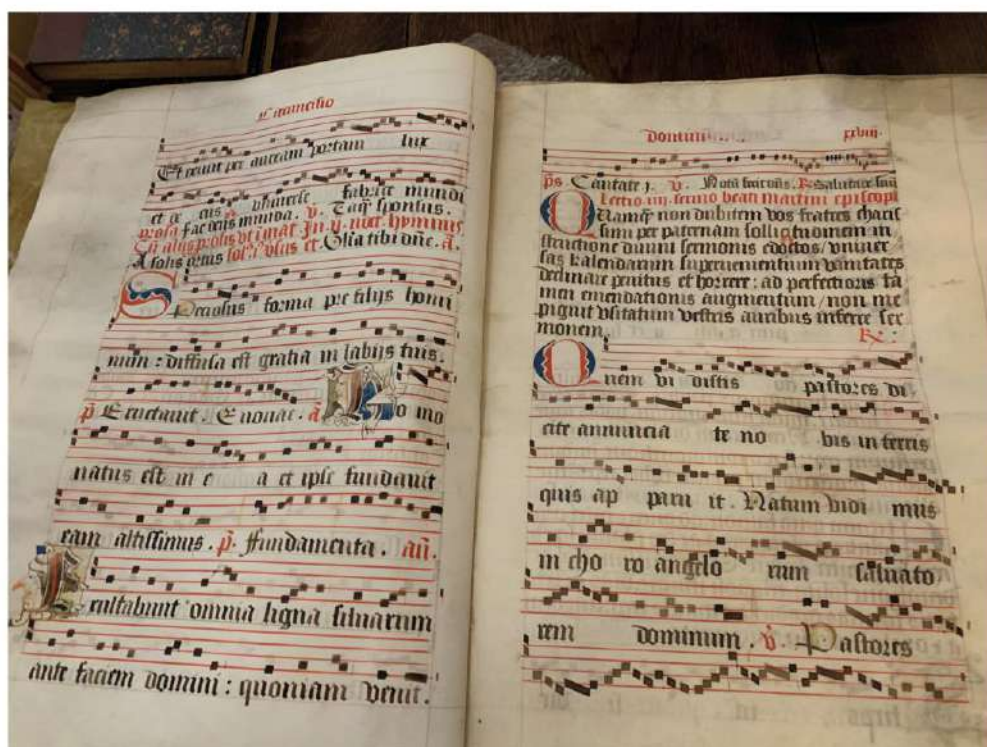 Et exivit per auream portam lux
et de cus universe fabrice mundi
prosa Fac deus munda. v̄. Tāq̄ sponsus.
A solis ortus
Speciosus forma pre filijs homi
num : diffusa est gratia in labijs tuis.
p̄ Eructavit. Euouae. a Homo
natus est in e a et ipse fundavit
eam altissimus. p̄. ffundamenta. añ.
Exultabunt omnia ligna silvarum
ante faciem domini : quoniam venit.
xxviij.
ps Cantate j. v̄.
Lectio iiij. sermo beati martini episcopi
QUamq̄ non dubitem vos fratres charis
simi per paternam sollicitudinem in
structione divini sermonis edoctos / univer
sas kalendarum supervenientium vanitates
declinare penitus et horrere : ad perfectionis ta
men emendationis augmentum / non me
piguit usitatum vestris auribus inferre ser
monem. Rx :
Quem vi distis pastores di
cite annuncia te no bis in terris
quis ap paru it. Natum vidi mus
in cho ro angelo rum salvato
rem dominum. v̄. Pastores